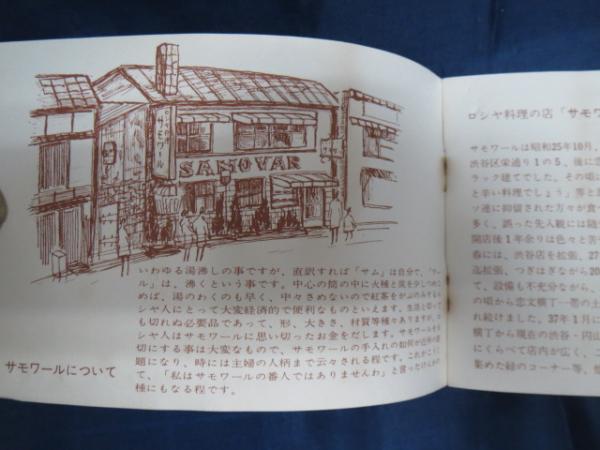 サモワール
SAMOVAR
いわゆる湯沸しの事ですが、直訳すれば「サム」は自分で、「ワー
ル」は、沸くという事です。中心の筒の中に火種と炭を少しつ
めば、湯のわくのも早く、中々さめないので紅茶をがぶのみするロ
シヤ人にとって大変経済的で便利なものといえます。生活と
も切れぬ必要品であって、形、大きさ、材質等種々ありますが、ロ
シヤ人はサモワールに思い切ったお金をだします。サモワールを
切にする事は大変なもので、サモワールの手入れの如何が近所の
題になり、時には主婦の人柄まで云々される程です。これがこ
て、「私はサモワールの番人ではありませんわ」と言ったけんか
種にもなる程です。
サモワールについて
ロシヤ料理の店「サモワ
サモワールは昭和25年10月、
渋谷区栄通り1の5、後に恋
ラック建てでした。その頃に
と辛い料理でしょう」等と
ソ連に抑留された方々が食べ
多く、誤った先入観には随
開店後1年余りは色々と苦
春には、渋谷店を拡張、27
迄拡張、つぎはぎながら20
て、設備も不充分ながら、
の頃から恋文横丁一帯の土
れ続けました。37年1月に
横丁から現在の渋谷・円山
にくらべて店内が広く、二
集めた緑のコーナー等、